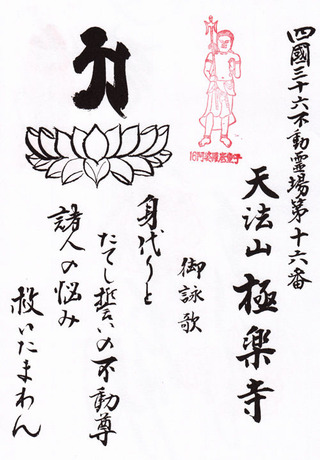 四國三十六不動霊場第十六番
天法山 極楽寺
御詠歌
身代りと
たてし誓いの不動尊
諸人の悩み
救いたまわん